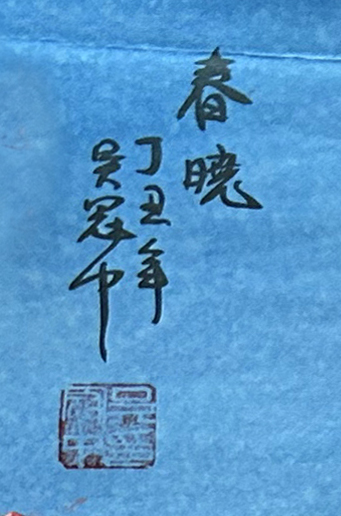 春曉
丁丑年
吴冠中